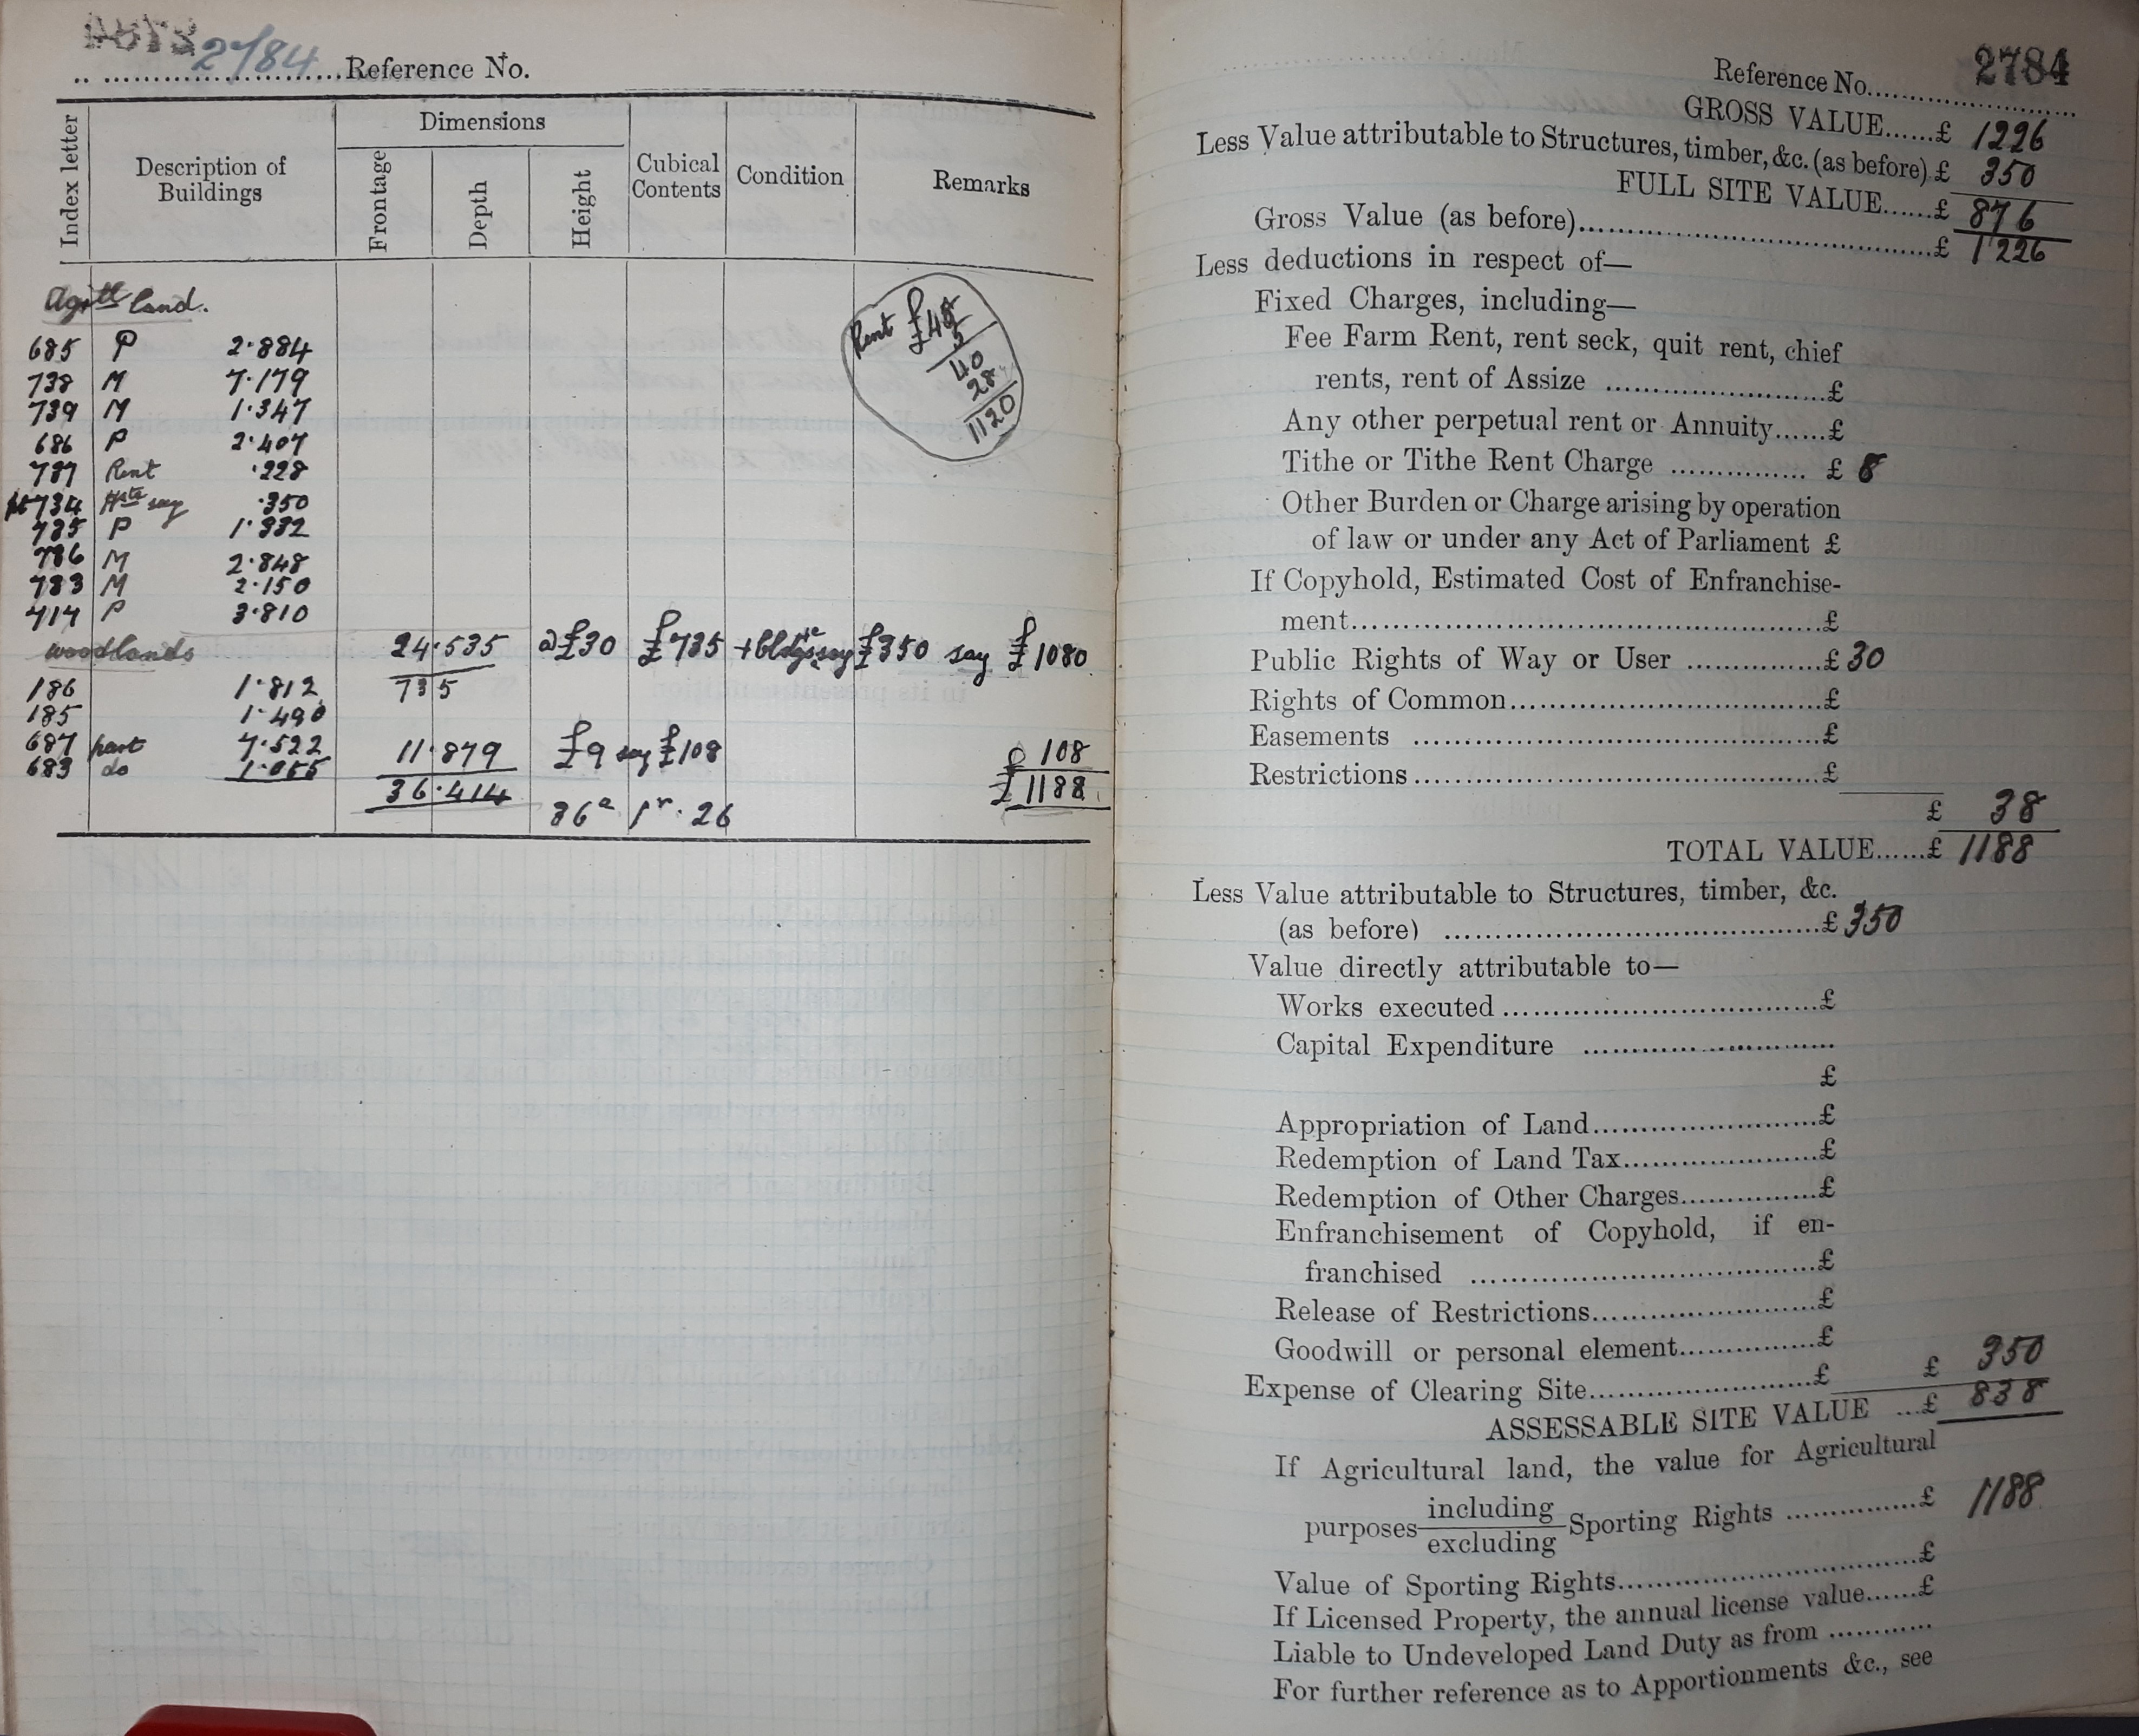 2784
Reference No.
Index letter
Description of Buildings
Dimensions
Frontage
Depth
Height
Cubical Contents
Condition
Remarks
Agrtl land.
Rent £45
5
40
28
1120
685 P 2.884
738 M 7.179
739 M 1.347
686 P 2.407
737 Rent .228
pt 734 Hste say .350
735 P 1.332
736 M 2.848
733 M 2.150
414 P 3.810
24.535 @ £30 £735 + bldgs say £350 say £1080
woodlands
735
186 1.812
185 1.490
687 part 7.522
683 do 1.055
11.879 £9 say £108 £108
36.414 £1188
36a 1r. 26
Reference No. 2784
GROSS VALUE......£ 1226
Less Value attributable to Structures, timber, &c. (as before) £ 350
FULL SITE VALUE......£ 876
Gross Value (as before)..........£ 1226
Less deductions in respect of—
Fixed Charges, including—
Fee Farm Rent, rent seck, quit rent, chief
rents, rent of Assize ..........£
Any other perpetual rent or Annuity......£
Tithe or Tithe Rent Charge .......... £ 8
Other Burden or Charge arising by operation
of law or under any Act of Parliament £
If Copyhold, Estimated Cost of Enfranchise-
ment..........£
Public Rights of Way or User ..........£ 30
Rights of Common..........£
Easements ..........£
Restrictions..........£
£ 38
TOTAL VALUE......£ 1188
Less Value attributable to Structures, timber, &c.
(as before) ..........£ 350
Value directly attributable to—
Works executed..........£
Capital Expenditure ..........
£
Appropriation of Land..........£
Redemption of Land Tax..........£
Redemption of Other Charges..........£
Enfranchisement of Copyhold, if en-
franchised ..........£
Release of Restrictions..........£
Goodwill or personal element..........£
Expense of Clearing Site..........£ £ 350
ASSESSABLE SITE VALUE ...£ 838
If Agricultural land, the value for Agricultural
purposes including/excluding Sporting Rights ..........£ 1188
Value of Sporting Rights..........£
If Licensed Property, the annual license value......£
Liable to Undeveloped Land Duty as from ............
For further reference as to Apportionments &c., see